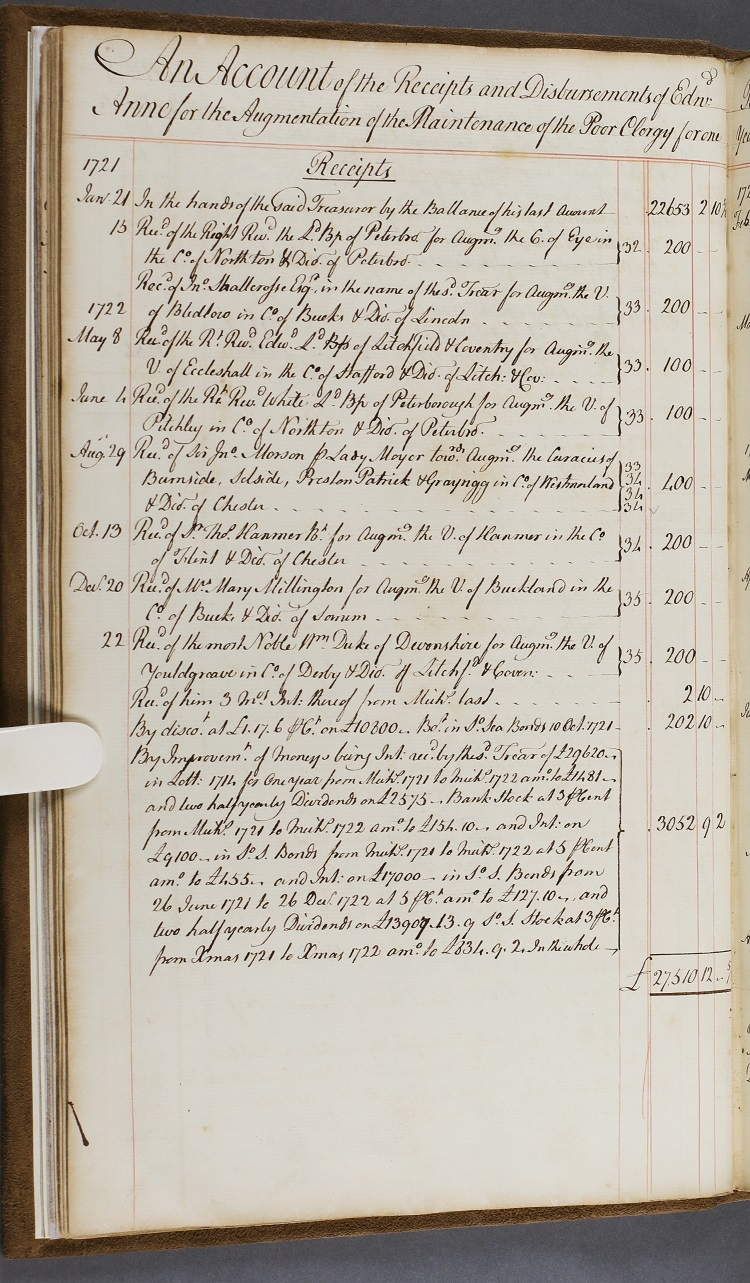 An Account of the Receipts and Disbursements of Edwd.
Anne for the Augmentation of the Maintenance of the Poor Clergy for one
1721 Receipts
Janr. 21 In the hands of the said Treasurer by the Ballance of his last Account 22653 2 10
13 Rec.d of the Right Rev.d the L.d Bp of Peterbro. for Augm.g the C. of Eye in
the C.o of Northton & Dio. of Peterbro. 32 . 200 - -
Rec.d of Jn.o Shallcrosse Esq.r, in the name of the s.d Trear for Augm.g the V.
1722 of Bledlow in C.o of Bucks & Dio. of Lincoln 33 . 200 - -
May 8 Rec.d of the R.t Rev.d Edw.d L.d Bp of Litchfield & Coventry for Augm.g the
V. of Eccleshall in the C.o of Stafford & Dio. of Litch: & Cov: 33 . 100 - -
June 4 Rec.d of the R.t Rev.d White L.d Bp of Peterborough for Augm.g the V. of
Pitchley in C.o of Northton & Dio. of Peterbro. 33 . 100 - -
Aug. 29 Rec.d of Sir Jn.o Morson p Lady Moyer tow.ds Augm.g the Curacies of
Burnside, Selside, Preston Patrick & Grayrigg in C.o of Westmorland
& Dio. of Chester 33 34 34 34 . 400 - -
Oct. 13 Rec.d of S.r Tho.s Hanmer B.t for Augm.g the V. of Hanmer in the C.o
of Flint & Dio. of Chester 34 . 200 - -
Dec.r 20 Rec.d of M.rs Mary Millington for Augm.g the V. of Buckland in the
C.o of Bucks & Dio. of Sarum 35 . 200 - -
22 Rec.d of the most Noble W.m Duke of Devonshire for Augm.g the V. of
Youldgreave in C.o of Derby & Dio. of Litchf.d & Coven: 35 . 200 - -
Rec.d of him 3 Mo.s Int: thereof from Mich.s last . 2 10 -
By disco.t at £1. 17. 6 p C.t on £10800 Bo.t in S.o Sea Bonds 10 Oct. 1721 - . 202 10 -
By Improvem.t of moneys being Int: rec.d by the s.d Trear of £29620
in Lott: 1714 for One year from Mich.s 1721 to Mich.s 1722 am.o to £1481
and two half yearly Dividends on £2575 Bank Stock at 3 p Cent
from Mich.s 1721 to Mich.s 1722 am.o to £154. 10 and Int: on . 3052 9 2
£9100 in S.o S. Bonds from Mich.s 1721 to Mich.s 1722 at 5 p Cent
am.o to £455 and Int: on £17000 in S.o S. Bonds from
26 June 1721 to 26 Dec.r 1722 at 5 p C.t am.o to £127. 10 and
two half yearly Dividends on £13909. 13. 9 S.o S. Stock at 3 p C.t
from Xmas 1721 to Xmas 1722 am.o to £834. 9. 2. In the whole
£ 27510 12 -